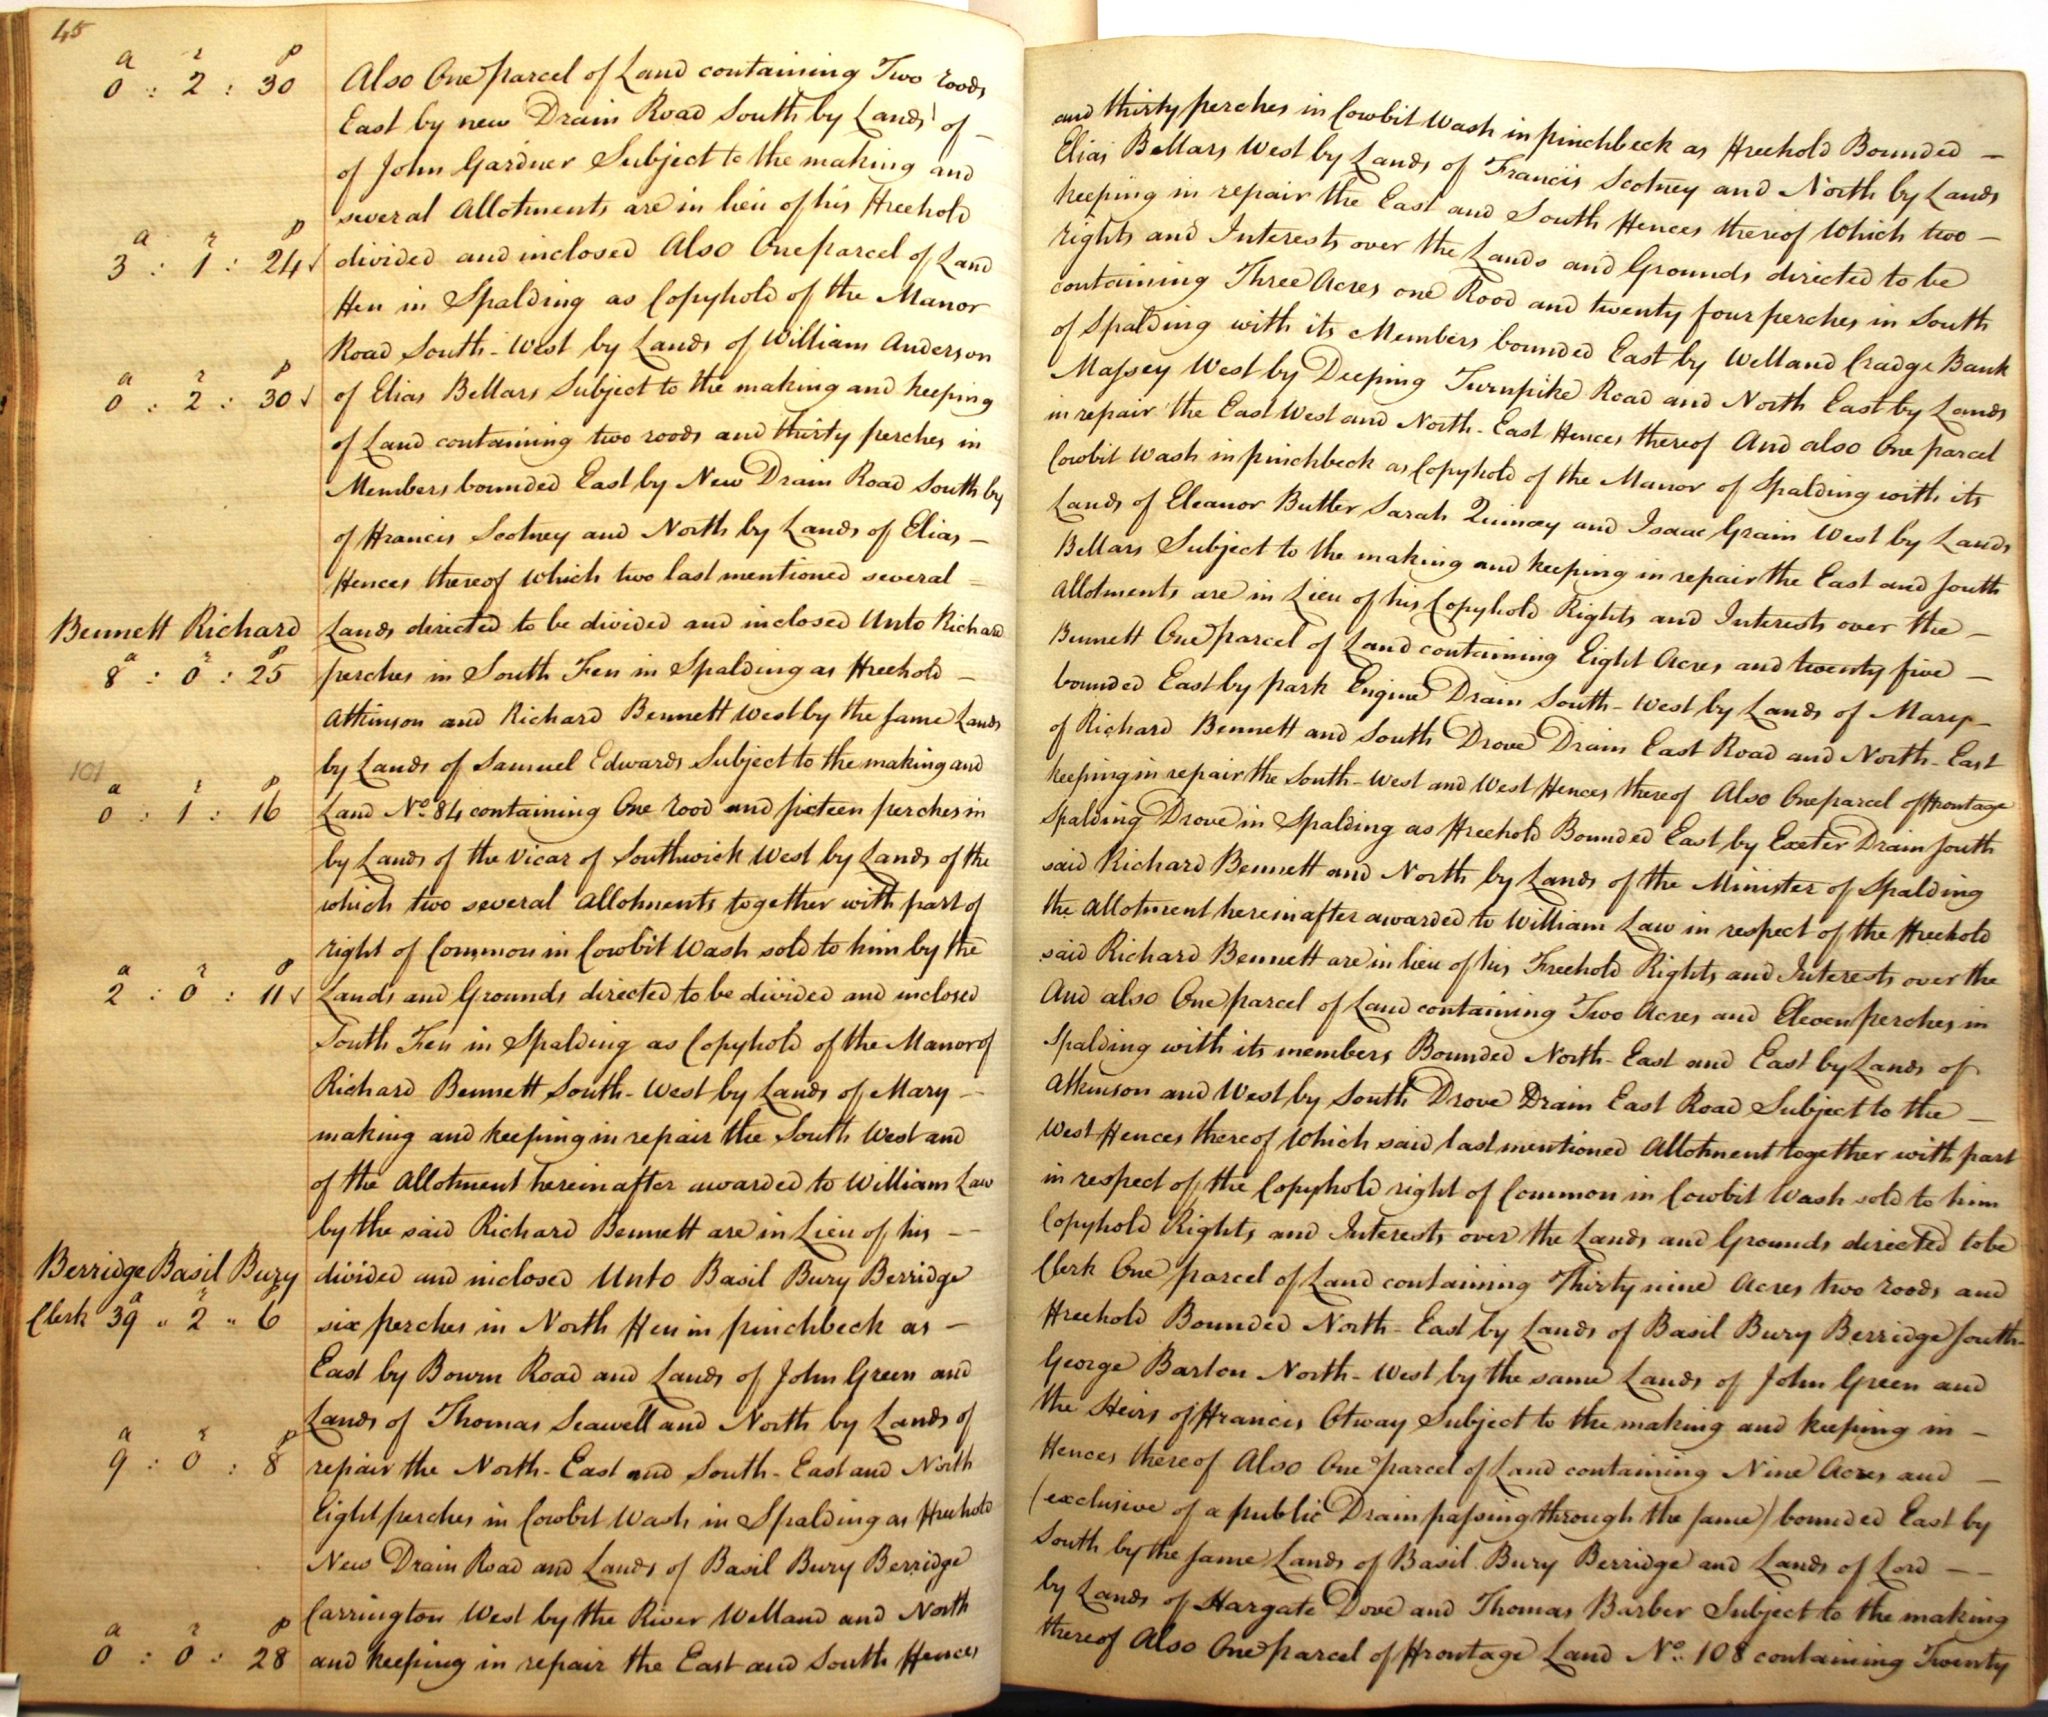 45
a r p
0 : 2 : 30 Also One parcel of Land containing Two roods and thirty perches in Cowbit Wash in pinchbeck as Freehold Bounded —
East by new Drain Road South by Lands of — Elias Bellars West by Lands of Francis Scotney and North by Lands
of John Gardner Subject to the making and keeping in repair the East and South Fences thereof Which two —
several Allotments are in lieu of his Freehold rights and Interests over the Lands and Grounds directed to be
a r p
3 : 1 : 24 ✓ divided and inclosed Also One parcel of Land containing Three Acres one Rood and twenty four perches in South
Fen in Spalding as Copyhold of the Manor of Spalding with its Members bounded East by Welland Cradge Bank
Road South-West by Lands of William Anderson Massey West by Deeping Turnpike Road and North East by Lands
a r p
0 : 2 : 30 ✓ of Elias Bellars Subject to the making and keeping in repair the East West and North-East Fences thereof And also One parcel
of Land containing two roods and thirty perches in Cowbit Wash in pinchbeck as Copyhold of the Manor of Spalding with its
Members bounded East by New Drain Road South by Lands of Eleanor Butler Sarah Quincey and Isaac Grain West by Lands
of Francis Scotney and North by Lands of Elias — Bellars Subject to the making and keeping in repair the East and South
Fences thereof Which two last mentioned several = Allotments are in Lieu of his Copyhold Rights and Interests over the —
Bennett Richard Lands directed to be divided and inclosed Unto Richard Bennett One parcel of Land containing Eight Acres and twenty five —
a r p
8 : 0 : 25 perches in South Fen in Spalding as Freehold — bounded East by park Engine Drain South-West by Lands of Mary —
Atkinson and Richard Bennett West by the same Lands of Richard Bennett and South Drove Drain East Road and North-East
by Lands of Samuel Edwards Subject to the making and keeping in repair the South-West and West Fences thereof Also One parcel of Frontage
101
a r p
0 : 1 : 16 Land No. 84 containing One rood and sixteen perches in Spalding Drove in Spalding as Freehold Bounded East by Exeter Drain South
by Lands of the Vicar of Southwick West by Lands of the said Richard Bennett and North by Lands of the Minister of Spalding
which two several Allotments together with part of the Allotment hereinafter awarded to William Law in respect of the Freehold
right of Common in Cowbit Wash sold to him by the said Richard Bennett are in lieu of his Freehold Rights and Interests over the
a r p
2 : 0 : 11 ✓ Lands and Grounds directed to be divided and inclosed And also One parcel of Land containing Two Acres and Eleven perches in
South Fen in Spalding as Copyhold of the Manor of Spalding with its members Bounded North-East and East by Lands of
Richard Bennett South-West by Lands of Mary — Atkinson and West by South Drove Drain East Road Subject to the —
making and keeping in repair the South West and West Fences thereof Which said last mentioned Allotment together with part
of the Allotment hereinafter awarded to William Law in respect of the Copyhold right of Common in Cowbit Wash sold to him
by the said Richard Bennett are in Lieu of his — — Copyhold Rights and Interests over the Lands and Grounds directed to be
Berridge Basil Bury divided and inclosed Unto Basil Bury Berridge Clerk One parcel of Land containing Thirty nine Acres two roods and
a r
Clerk 39 " 2 " 6 six perches in North Fen in pinchbeck as — Freehold Bounded North-East by Lands of Basil Bury Berridge South-
East by Bourn Road and Lands of John Green and George Barton North-West by the same Lands of John Green and
Lands of Thomas Seawell and North by Lands of the Heirs of Francis Otway Subject to the making and keeping in —
a r p
9 : 0 : 8 repair the North-East and South-East and North Fences thereof Also One parcel of Land containing Nine Acres and —
Eight perches in Cowbit Wash in Spalding as Freehold (exclusive of a public Drain passing through the same) bounded East by
New Drain Road and Lands of Basil Bury Berridge South by the same Lands of Basil Bury Berridge and Lands of Lord — —
Carrington West by the River Welland and North by Lands of Hargate Dove and Thomas Barber Subject to the making
a r p
0 : 0 : 28 and keeping in repair the East and South Fences thereof Also One parcel of Frontage Land No. 108 containing Twenty